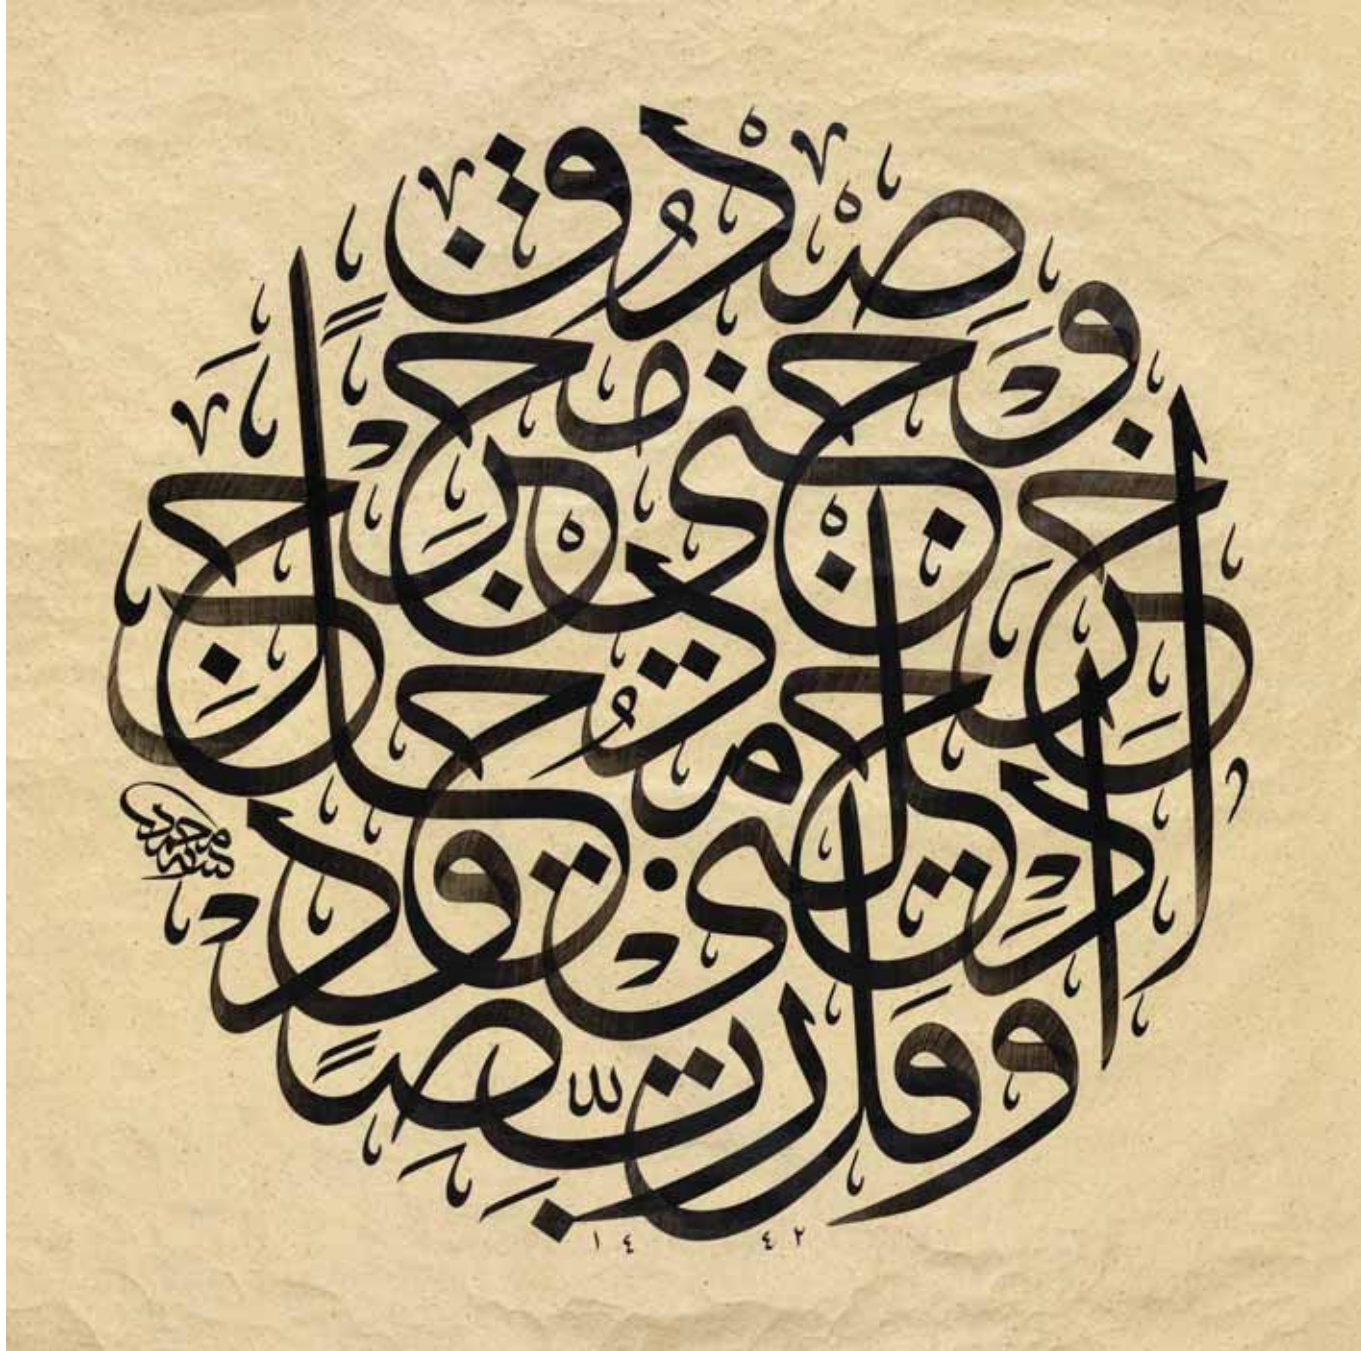 وَقُل رَّبِّ أَدْخِلْنِي مُدْخَلَ صِدْقٍ وَأَخْرِجْنِي مُخْرَجَ صِدْقٍ
١٤٤٢